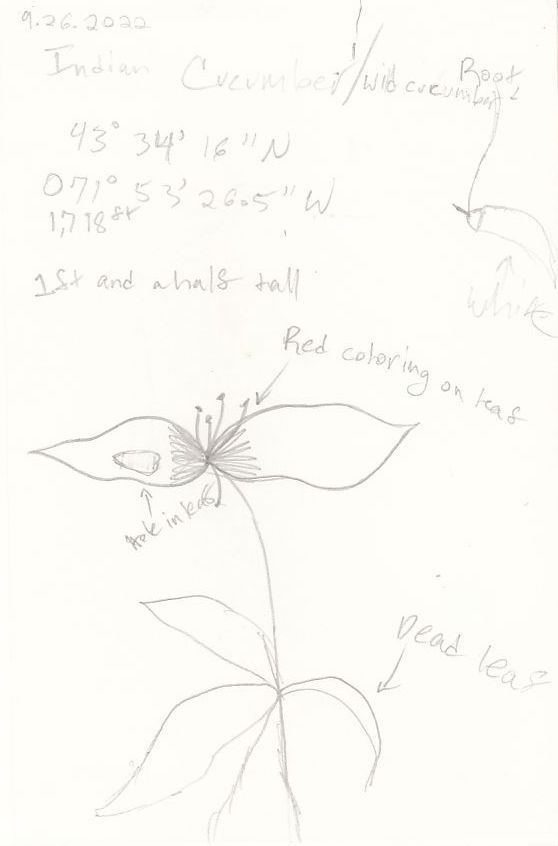 9.26.2022
Indian Cucumber/wild cucumber
Root
43° 34' 16" N
071° 53' 26.5" W
1,718ft
1ft and a half tall
White
Red coloring on leaf
Hole in leaf
Dead leaf